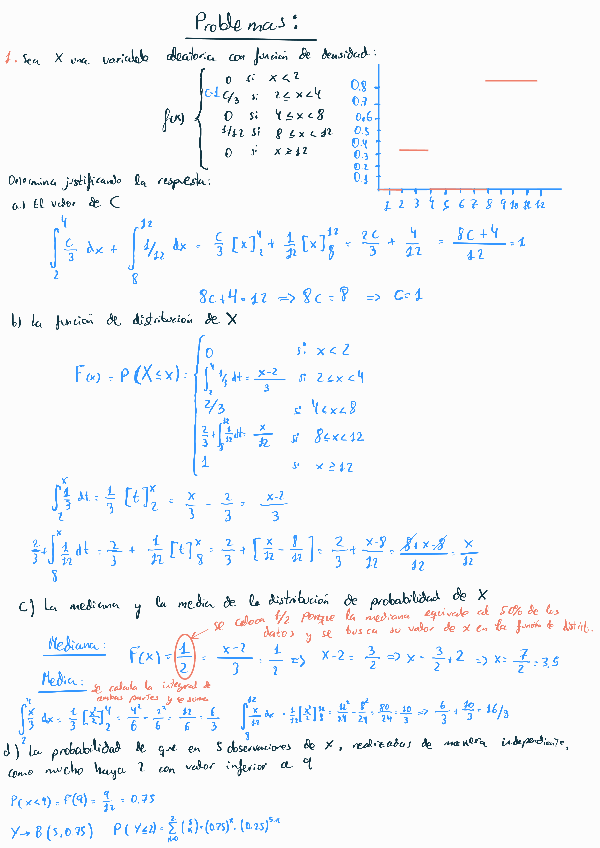 Problemas:
1. Sea X una variable aleatoria con función de densidad:
f(x) { 0 si x < 2
c=1 c/3 si 2 ≤ x < 4
0 si 4 ≤ x < 8
1/12 si 8 ≤ x < 12
0 si x ≥ 12
0.8
0.7
0.6
0.5
0.4
0.3
0.2
0.1
1 2 3 4 5 6 7 8 9 10 11 12
Determina justificando la respuesta:
a) El valor de C
∫₂⁴ c/3 dx + ∫₈¹² 1/12 dx = c/3 [x]₂⁴ + 1/12 [x]₈¹² = 2c/3 + 4/12 = (8c+4)/12 = 1
8c+4=12 => 8c=8 => c=1
b) La función de distribución de X
F(x) = P(X≤x) = { 0 si x < 2
∫₂⁴ 1/3 dt = (x-2)/3 si 2 ≤ x < 4
2/3 si 4 ≤ x < 8
2/3 + ∫₈¹² 1/12 dt = x/12 si 8 ≤ x < 12
1 si x ≥ 12
∫₂ˣ 1/3 dt = 1/3 [t]₂ˣ = x/3 - 2/3 = (x-2)/3
2/3 + ∫₈ˣ 1/12 dt = 2/3 + 1/12 [t]₈ˣ = 2/3 + [x/12 - 8/12] = 2/3 + (x-8)/12 = (8+x-8)/12 = x/12
c) La mediana y la media de la distribución de probabilidad de X
se coloca 1/2 porque la mediana equivale al 50% de los
datos y se busca su valor de x en la función de distrib..
Mediana: F(x) = 1/2 = (x-2)/3 = 1/2 => x-2 = 3/2 => x = 3/2 + 2 => x = 7/2 = 3,5
Media: se calcula la integral de
ambas partes y se suma
∫₂⁴ x/3 dx = 1/3 [x²/2]₂⁴ = 4²/6 - 2²/6 = 12/6 = 6/3 ∫₈¹² x/12 dx = 1/12 [x²/2]₈¹² = 12²/24 - 8²/24 = 80/24 = 10/3 => 6/3 + 10/3 = 16/3
d) La probabilidad de que en 5 observaciones de X, realizadas de manera independiente,
como mucho haya 2 con valor inferior a 9
P(x<9) = F(9) = 9/12 = 0.75
Y → B(5, 0.75) P(Y≤2) =